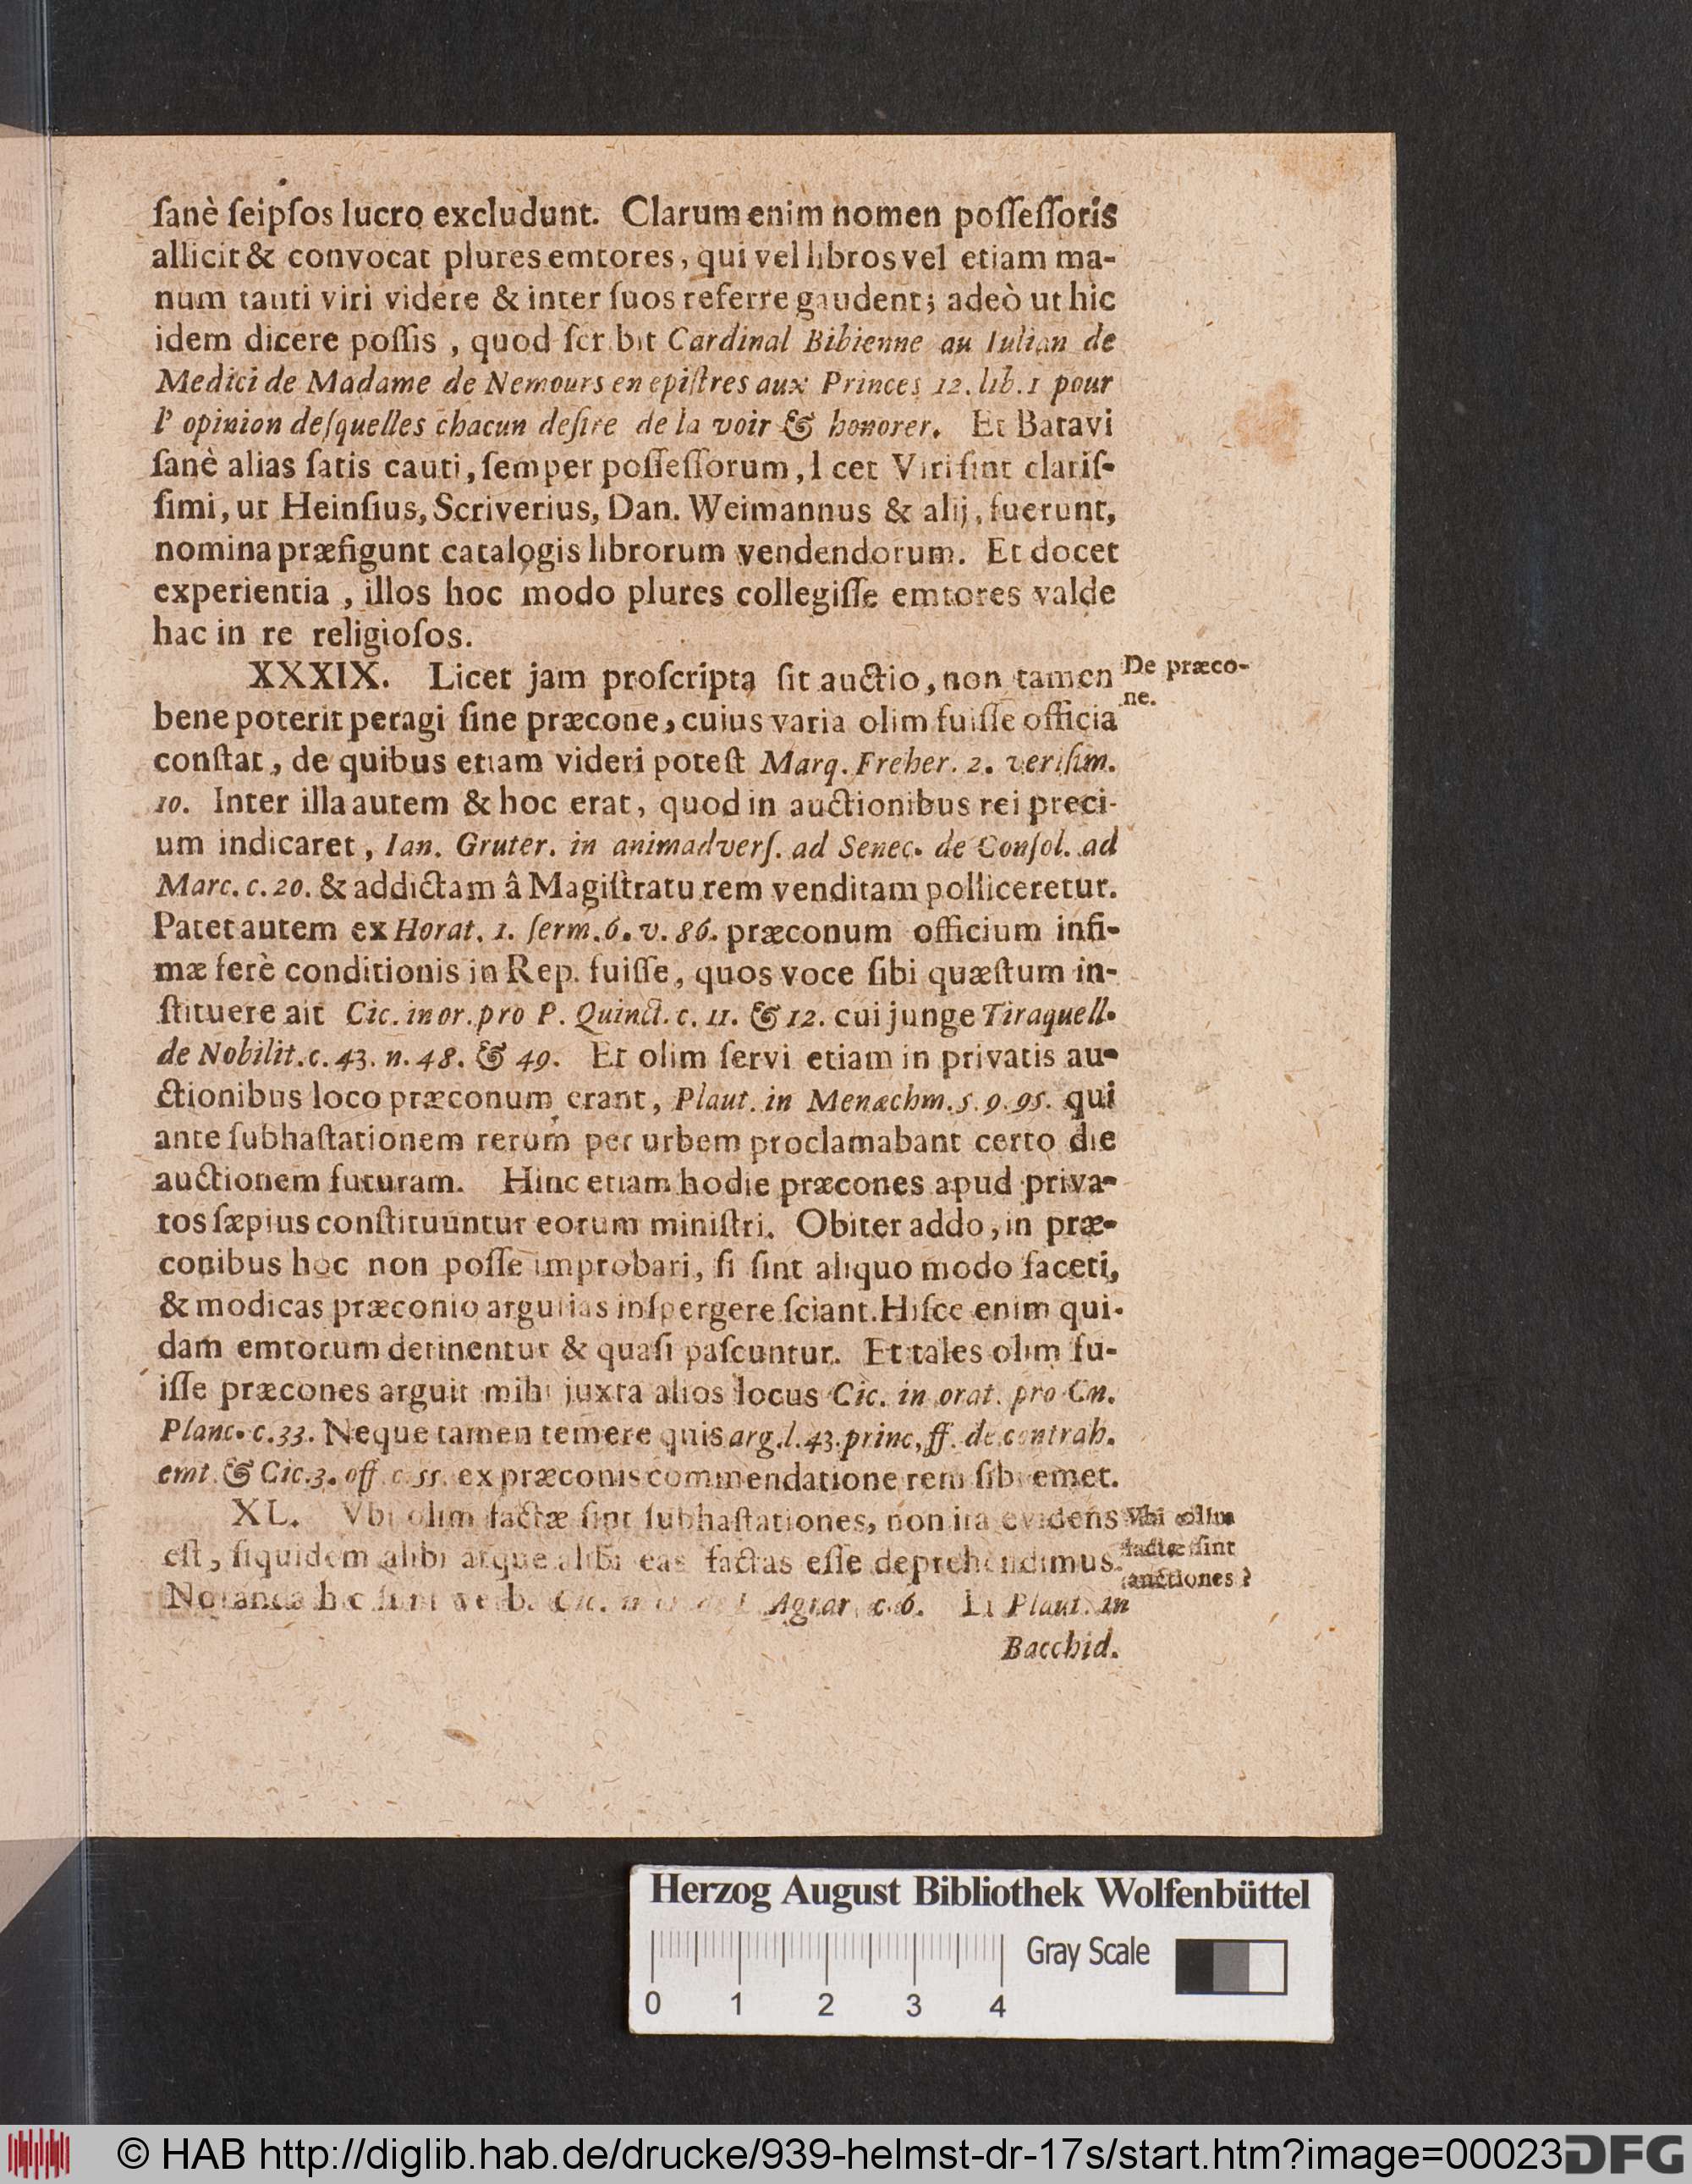 ſanè ſeipſos lucro excludunt. Clarum enim nomen poſſeſſoris
allicit & convocat plures emtores, qui vel libros vel etiam ma-
num tanti viri videre & inter ſuos referre gaudent; adeò ut hic
idem dicere poſſis , quod ſcr bit Cardinal Bibienne au Iulian de
Medici de Madame de Nemours en epiſtres aux Princes 12. lib. 1 pour
l' opinion deſquelles chacun deſire de la voir & honorer. Et Batavi
ſanè alias ſatis cauti, ſemper poſſeſſorum, l cet Viri ſint clariſ-
ſimi, ut Heinſius, Scriverius, Dan. Weimannus & alij, fuerunt,
nomina præfigunt catalogis librorum vendendorum. Et docet
experientia , illos hoc modo plures collegiſſe emtores valde
hac in re religioſos.
XXXIX. Licet jam proſcripta ſit auctio, non tamen
De præco-
ne.
bene poterit peragi ſine præcone, cuius varia olim fuiſſe officia
conſtat, de quibus etiam videri poteſt Marq. Freher. 2. veriſim.
10. Inter illa autem & hoc erat, quod in auctionibus rei preci-
um indicaret, Ian. Gruter. in animadverſ. ad Senec. de Conſol. ad
Marc. c. 20. & addictam â Magiſtratu rem venditam polliceretur.
Patet autem ex Horat. 1. ſerm. 6. v. 86. præconum officium infi-
mæ ferè conditionis in Rep. fuiſſe, quos voce ſibi quæſtum in-
ſtituere ait Cic. in or. pro P. Quinct. c. 11. & 12. cui junge Tiraquell.
de Nobilit. c. 43. n. 48. & 49. Et olim ſervi etiam in privatis au-
ctionibus loco præconum erant, Plaut. in Menæchm. 5. 9. 95. qui
ante ſubhaſtationem rerum per urbem proclamabant certo die
auctionem futuram. Hinc etiam hodie præcones apud priva-
tos ſæpius conſtituuntur eorum miniſtri. Obiter addo, in præ-
conibus hoc non poſſe improbari, ſi ſint aliquo modo faceti,
& modicas præconio argutias inſpergere ſciant. Hiſce enim qui-
dam emtorum detinentur & quaſi paſcuntur. Et tales olim fu-
iſſe præcones arguit mihi juxta alios locus Cic. in orat. pro Cn.
Planc. c. 33. Neque tamen temere quis arg. l. 43. princ. ff. de contrah.
emt. & Cic. 3. off. c. 55. ex præconis commendatione rem ſibi emet.
XL. Vbi olim factæ ſint ſubhaſtationes, non ita evidens
Vbi olim
factæ ſint
auctiones?
eſt, ſiquidem alibi atque alibi eas factas eſſe deprehendimus.
Notanda hic ſunt verba Cic. Agrar. c. 6. Et Plaut. in
Bacchid.
Herzog August Bibliothek Wolfenbüttel
Gray Scale
0 1 2 3 4
© HAB http://diglib.hab.de/drucke/939-helmst-dr-17s/start.htm?image=00023
DFG